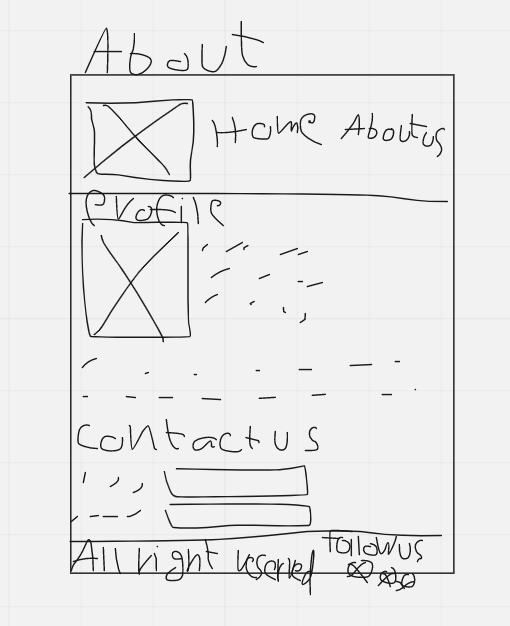 About
Home About us
Profile
Contact us
All right reserved
follow us